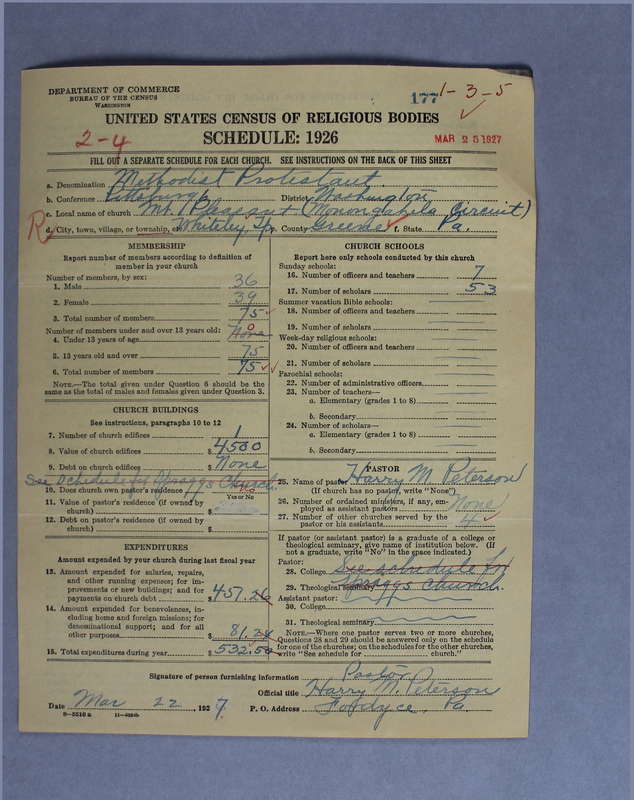 DEPARTMENT OF COMMERCE
BUREAU OF THE CENSUS
WASHINGTON
177 1-3-5
UNITED STATES CENSUS OF RELIGIOUS BODIES
2-4 SCHEDULE: 1926 MAR 25 1927
FILL OUT A SEPARATE SCHEDULE FOR EACH CHURCH. SEE INSTRUCTIONS ON THE BACK OF THIS SHEET
a. Denomination Methodist Protestant
b. Conference Pittsburgh District Washington
c. Local name of church Mt. Pleasant (Monongahela Circuit)
R d. City, town, village, or township, etc. Whiteley Tp. County Greene f. State Pa.
MEMBERSHIP
Report number of members according to definition of
member in your church
Number of members, by sex:
1. Male 36
2. Female 39
3. Total number of members 75
Number of members under and over 13 years old:
4. Under 13 years of age None 0
5. 13 years old and over 75
6. Total number of members 75
NOTE.—The total given under Question 6 should be the
same as the total of males and females given under Question 3.
CHURCH BUILDINGS
See instructions, paragraphs 10 to 12
7. Number of church edifices 1
8. Value of church edifices $ 4500
9. Debt on church edifices $ None
See schedule for Spraggs Church.
10. Does church own pastor's residence No
Yes or No
11. Value of pastor's residence (if owned by
church) $
12. Debt on pastor's residence (if owned by
church) $
EXPENDITURES
Amount expended by your church during last fiscal year
13. Amount expended for salaries, repairs,
and other running expenses; for im-
provements or new buildings; and for
payments on church debt $ 457.26
14. Amount expended for benevolences, in-
cluding home and foreign missions; for
denominational support; and for all
other purposes $ 81.24
15. Total expenditures during year $ 532.50
CHURCH SCHOOLS
Report here only schools conducted by this church
Sunday schools:
16. Number of officers and teachers 7
17. Number of scholars 53
Summer vacation Bible schools:
18. Number of officers and teachers
19. Number of scholars
Week-day religious schools:
20. Number of officers and teachers
21. Number of scholars
Parochial schools:
22. Number of administrative officers
23. Number of teachers—
a. Elementary (grades 1 to 8)
b. Secondary
24. Number of scholars—
a. Elementary (grades 1 to 8)
b. Secondary
PASTOR
25. Name of pastor Harry M. Peterson
(If church has no pastor, write "None")
26. Number of ordained ministers, if any, em-
ployed as assistant pastors None
27. Number of other churches served by the
pastor or his assistants 4
If pastor (or assistant pastor) is a graduate of a college or
theological seminary, give name of institution below. (If
not a graduate, write "No" in the space indicated.)
Pastor:
28. College See schedule for
29. Theological seminary Spraggs Church.
Assistant pastor:
30. College
31. Theological seminary
NOTE.—Where one pastor serves two or more churches,
Questions 28 and 29 should be answered only on the schedule
for one of the churches; on the schedules for the other churches,
write "See schedule for church."
Signature of person furnishing information Pastor
Official title Harry M. Peterson
Date Mar 22, 1927. P. O. Address Fordyce, Pa.
8—5518 a